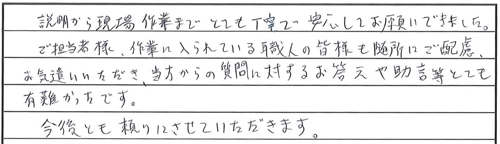 説明から現場作業までとても丁寧で安心してお願いできました。
ご担当者様、作業に入られている職人の皆様も随所にご配慮、
お気遣いいただき、当方からの質問に対するお答えや助言等とても
有難かったです。
今後とも頼りにさせていただきます。